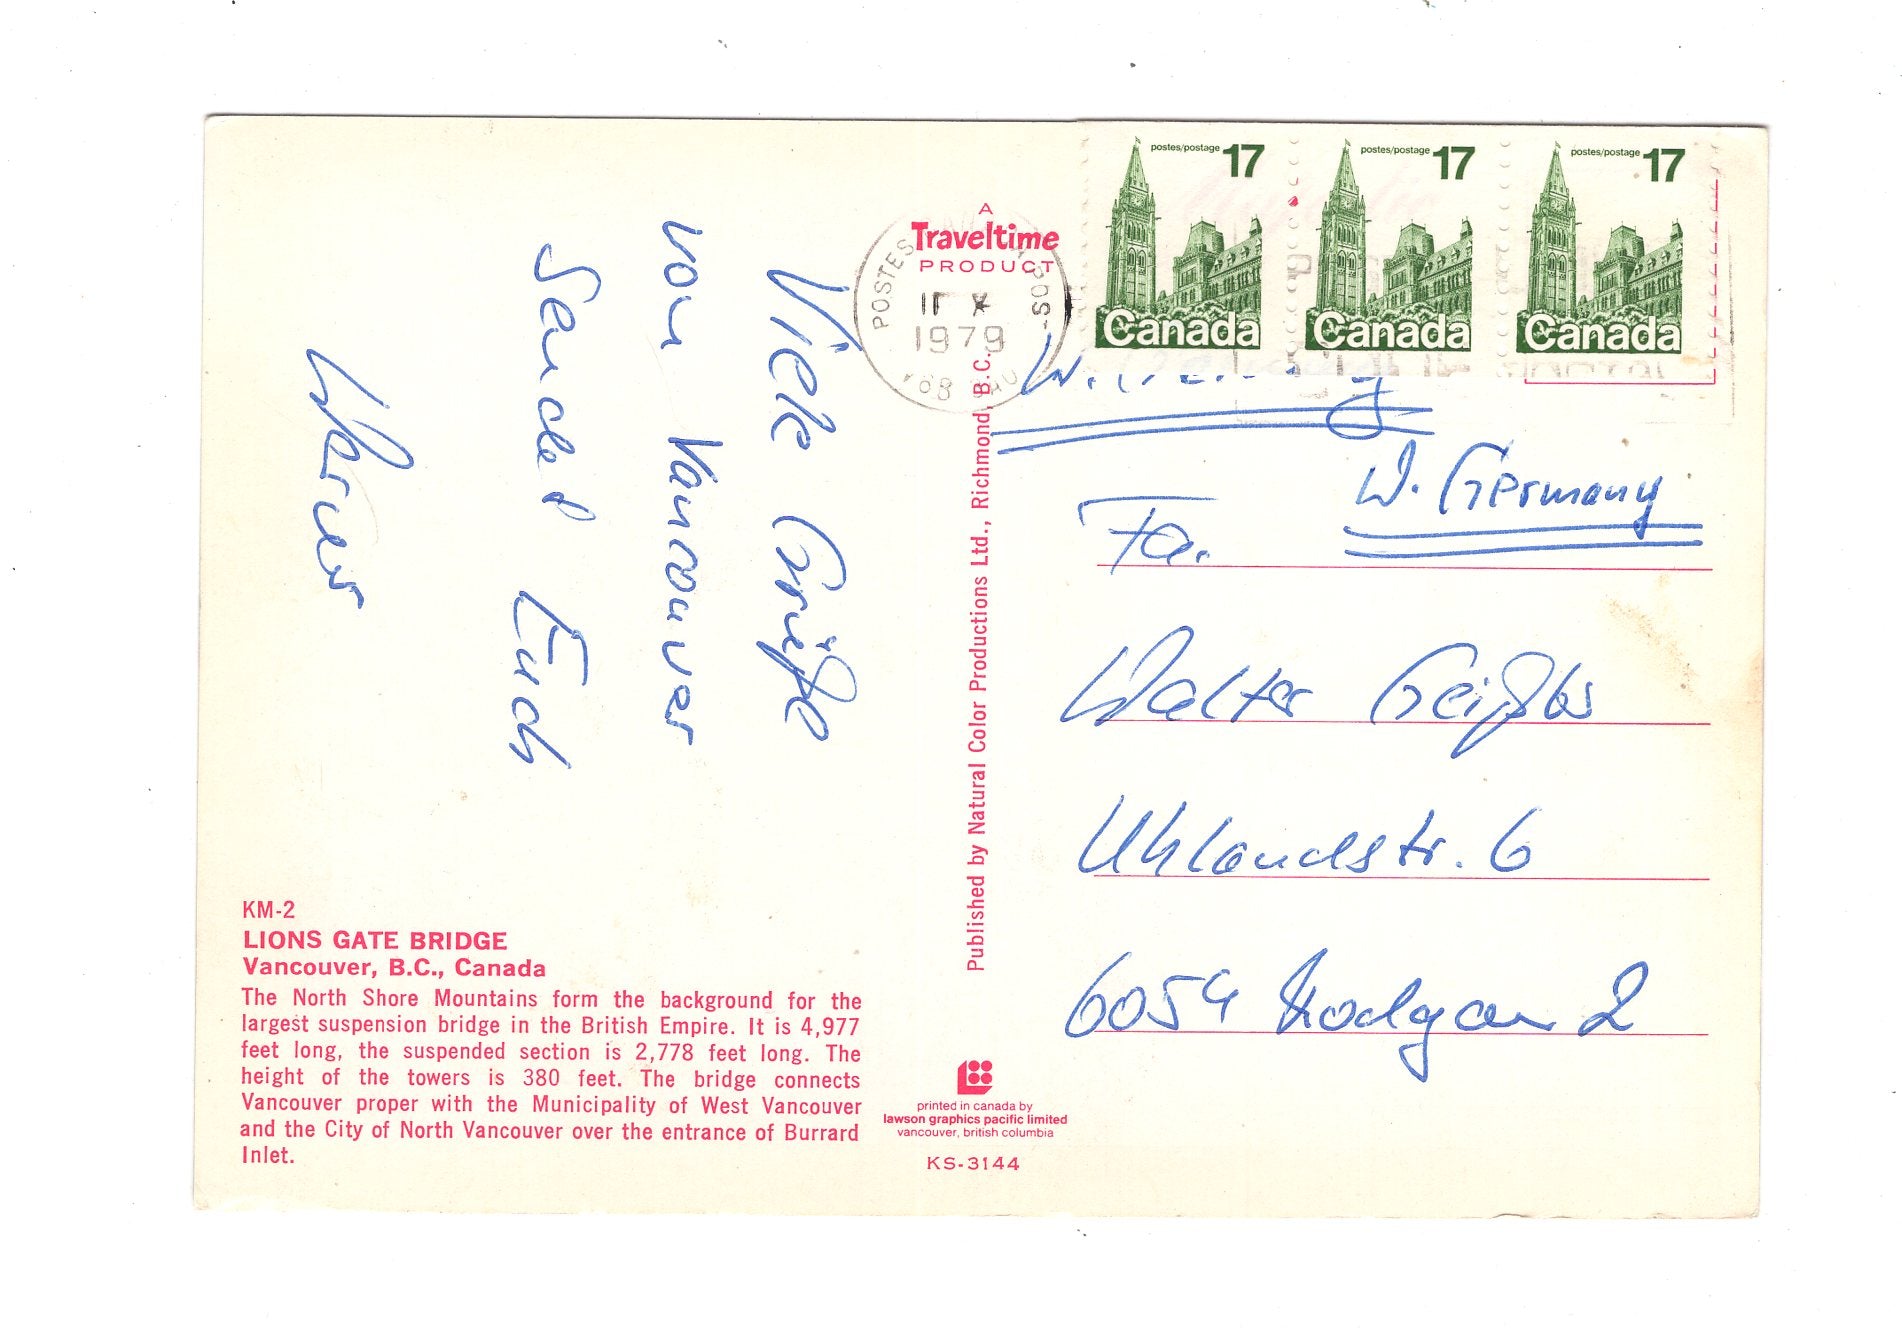 Viele Grüße
von Vancouver
sendet Euch
A
Traveltime
PRODUCT
POSTES
POS
11 X
1979
V6B
postes/postage 17
Canada
postes/postage 17
Canada
postes/postage 17
Canada
W. Germany
W. Germany
Fa.
Walter Geißler
Uhlandstr. 6
6054 Rodgau 2
Published by Natural Color Productions Ltd., Richmond, B.C.
KM-2
LIONS GATE BRIDGE
Vancouver, B.C., Canada
The North Shore Mountains form the background for the
largest suspension bridge in the British Empire. It is 4,977
feet long, the suspended section is 2,778 feet long. The
height of the towers is 380 feet. The bridge connects
Vancouver proper with the Municipality of West Vancouver
and the City of North Vancouver over the entrance of Burrard
Inlet.
printed in canada by
lawson graphics pacific limited
vancouver, british columbia
KS-3144